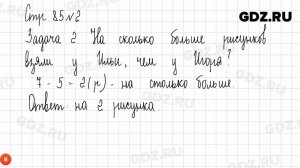 GDZ.RU
Стр. 85 №2
Задача 2. На сколько больше рисунков
взяли у Ильи, чем у Игоря?
7 - 5 = 2 (р.) - на столько больше.
Ответ: на 2 рисунка.